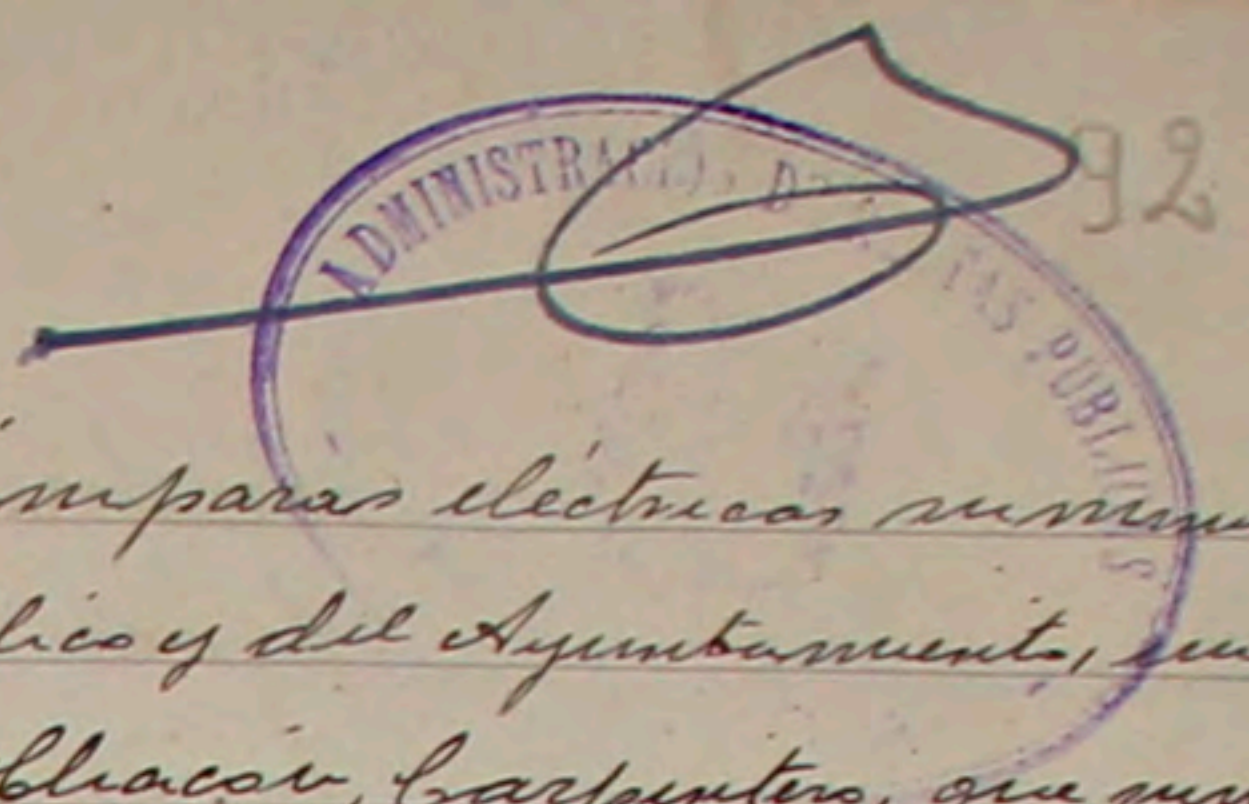 92
ADMINISTRACION D TAS PUBLICAS
mparas eléctricas sumini
lico y del Ayuntamiento, en
Chacón, Carpintero, que